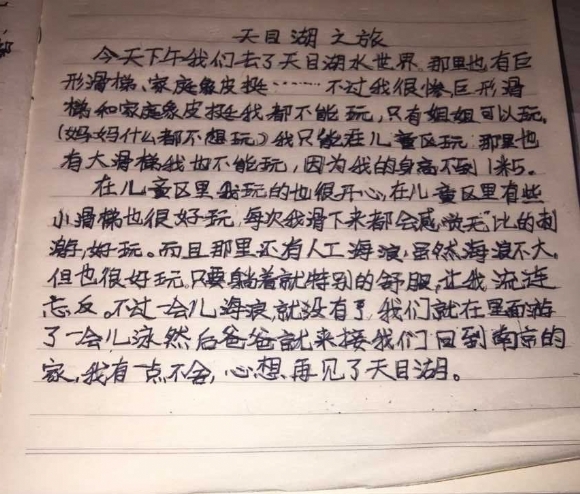 天目湖之旅
今天下午我们去了天目湖水世界,那里也有巨
形滑梯、家庭象皮挺……不过我很惨,巨形滑
梯和家庭象皮挺我都不能玩,只有姐姐可以玩。
(妈妈什么都不想玩。)我只能在儿童区玩,那里也
有大滑梯我也不能玩,因为我的身高不到1米5。
在儿童区里,我玩的也很开心,在儿童区里有些
小滑梯也很好玩,每次我滑下来都会感觉无比的刺
激,好玩。而且那里还有人工海浪,虽然海浪不大,
但也很好玩,只要躺着就特别的舒服,让我流连
忘反。不过一会儿海浪就没有了,我们就在里面游
了一会儿泳,然后爸爸就来接我们回到南京的
家,我有一点不舍,心想,再见了天目湖。